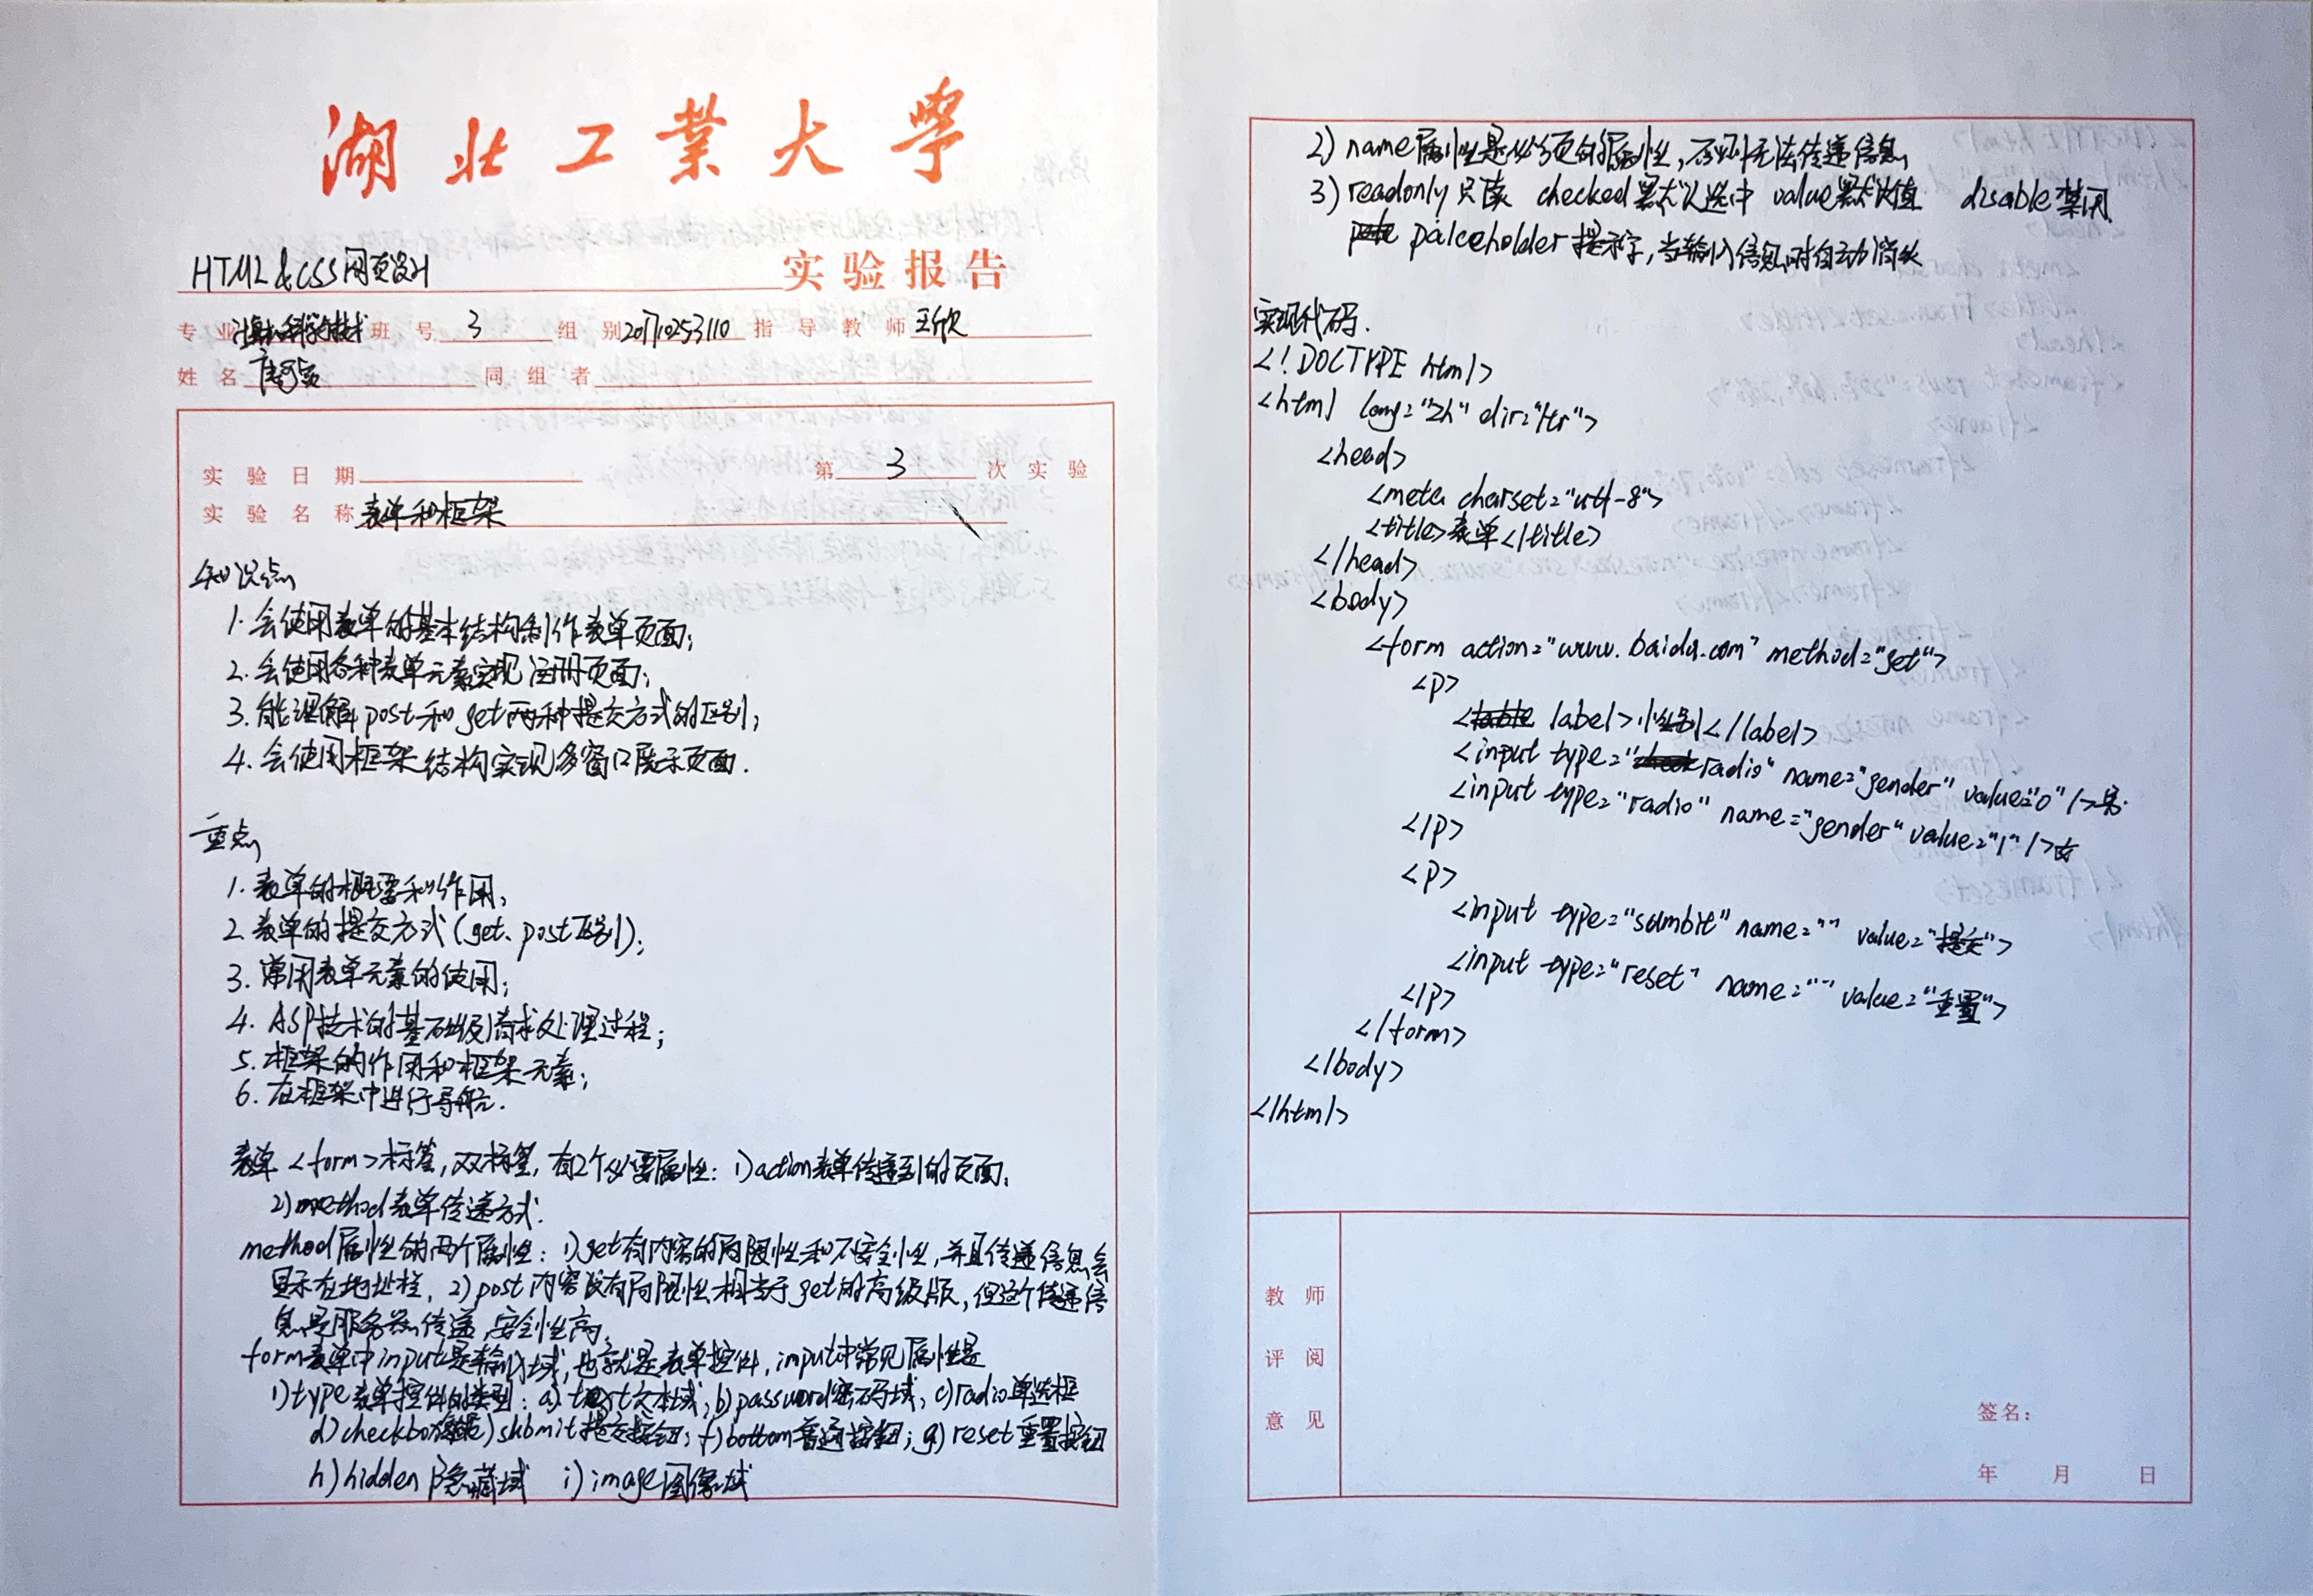 湖北工业大学
HTML&CSS网页设计 实验报告
专业 计算机科学与技术 班号 3 组别 201710253110 指导教师 王欣
姓名 同组者
实验日期 第 3 次实验
实验名称 表单和框架
知识点
1. 会使用表单的基本结构制作表单页面;
2. 会使用各种表单元素实现注册页面;
3. 能理解post和get两种提交方式的区别;
4. 会使用框架结构实现多窗口展示页面.
重点
1. 表单的概要和作用;
2. 表单的提交方式(get、post区别);
3. 常用表单元素的使用;
4. ASP技术的基础及请求处理过程;
5. 框架的作用和框架元素;
6. 在框架中进行导航.
表单<form>标签,双标签,有2个必要属性: 1)action表单传递到的页面.
2)method表单传递方式.
method属性的两个属性: 1)get有内容的局限性和不安全性,并且传递信息会
显示在地址栏, 2)post内容没有局限性相当于get的高级版,但这个传递信
息是服务器传递,安全性高.
form表单中input是输入域,也就是表单控件,input中常见属性是
1)type表单控件的类型: a)text文本域; b)password密码域; c)radio单选框
d)checkbox e)submit提交按钮; f)bottom普通按钮; g)reset重置按钮
h)hidden隐藏域 i)image图像域
2) name属性是必须的属性,否则无法传递信息
3) readonly 只读 checked默认选中 value默认值 disable禁用
palceholder 提示字,当输入信息时自动消失
实现代码.
<!DOCTYPE html>
<html lang="zh" dir="ltr">
<head>
<meta charset="utf-8">
<title>表单</title>
</head>
<body>
<form action="www.baidu.com" method="get">
<p>
<label>性别</label>
<input type="radio" name="gender" value="0" />男
<input type="radio" name="gender" value="1" />女
</p>
<p>
<input type="sumbit" name="" value="提交">
<input type="reset" name="" value="重置">
</p>
</form>
</body>
</html>
教师
评阅
意见
签名:
年 月 日